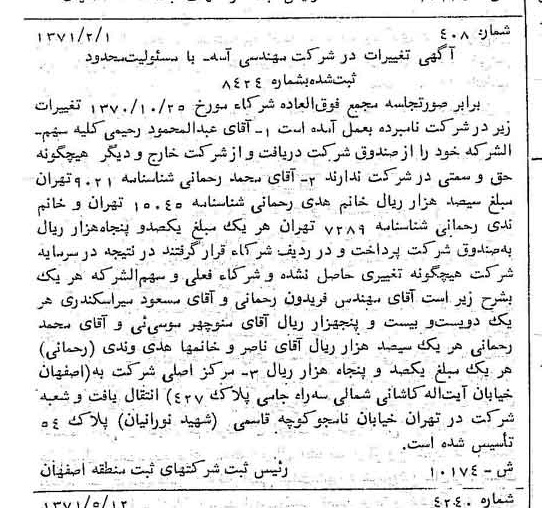 شماره ۴۰۸ ۱۳۷۱/۲/۱
آگهی تغییرات در شرکت مهندسی آسه‌ با مسئولیت‌محدود
ثبت‌شده‌بشماره ۸۴۲۴
برابر صورتجلسه مجمع فوق‌العاده شرکاء مورخ ۱۳۷۰/۱۰/۲۵ تغییرات
زیر در شرکت نامبرده بعمل آمده است ۱ـ آقای عبدالمحمود رحیمی کلیه سهم‌ـ
الشرکه خود را از صندوق شرکت دریافت و از شرکت خارج و دیگر هیچگونه
حق و سمتی در شرکت ندارند ۲ـ آقای محمد رحمانی شناسنامه ۹۰۲۱ تهران
مبلغ سیصد هزار ریال خانم هدی رحمانی شناسنامه ۱۵۰۴۵ تهران و خانم
ندی رحمانی شناسنامه ۷۲۸۹ تهران هر یک مبلغ یکصدو پنجاه‌هزار ریال
به‌صندوق شرکت پرداخت و در ردیف شرکاء قرار گرفتند در نتیجه در سرمایه
شرکت هیچگونه تغییری حاصل نشده و شرکاء فعلی و سهم‌الشرکه هر یک
بشرح زیر است آقای مهندس فریدون رحمانی و آقای مسعود میراسکندری هر
یک دویست‌و بیست و پنجهزار ریال آقای منوچهر موسی‌ئی و آقای محمد
رحمانی هر یک سیصد هزار ریال آقای ناصر و خانمها هدی وندی (رحمانی)
هر یک مبلغ یکصد و پنجاه هزار ریال ۳ـ مرکز اصلی شرکت به(اصفهان
خیابان آیت‌اله کاشانی شمالی سه‌راه جامی پلاک ۴۲۷) انتقال یافت و شعبه
شرکت در تهران خیابان نامجوکوچه قاسمی (شهید نورانیان) پلاک ۵۴
تأسیس شده است.
ش ـ ۱۰۱۷۴ رئیس ثبت شرکتهای ثبت منطقه اصفهان
شماره ۴۲۴۰ ۱۳۷۱/۹/۱۲